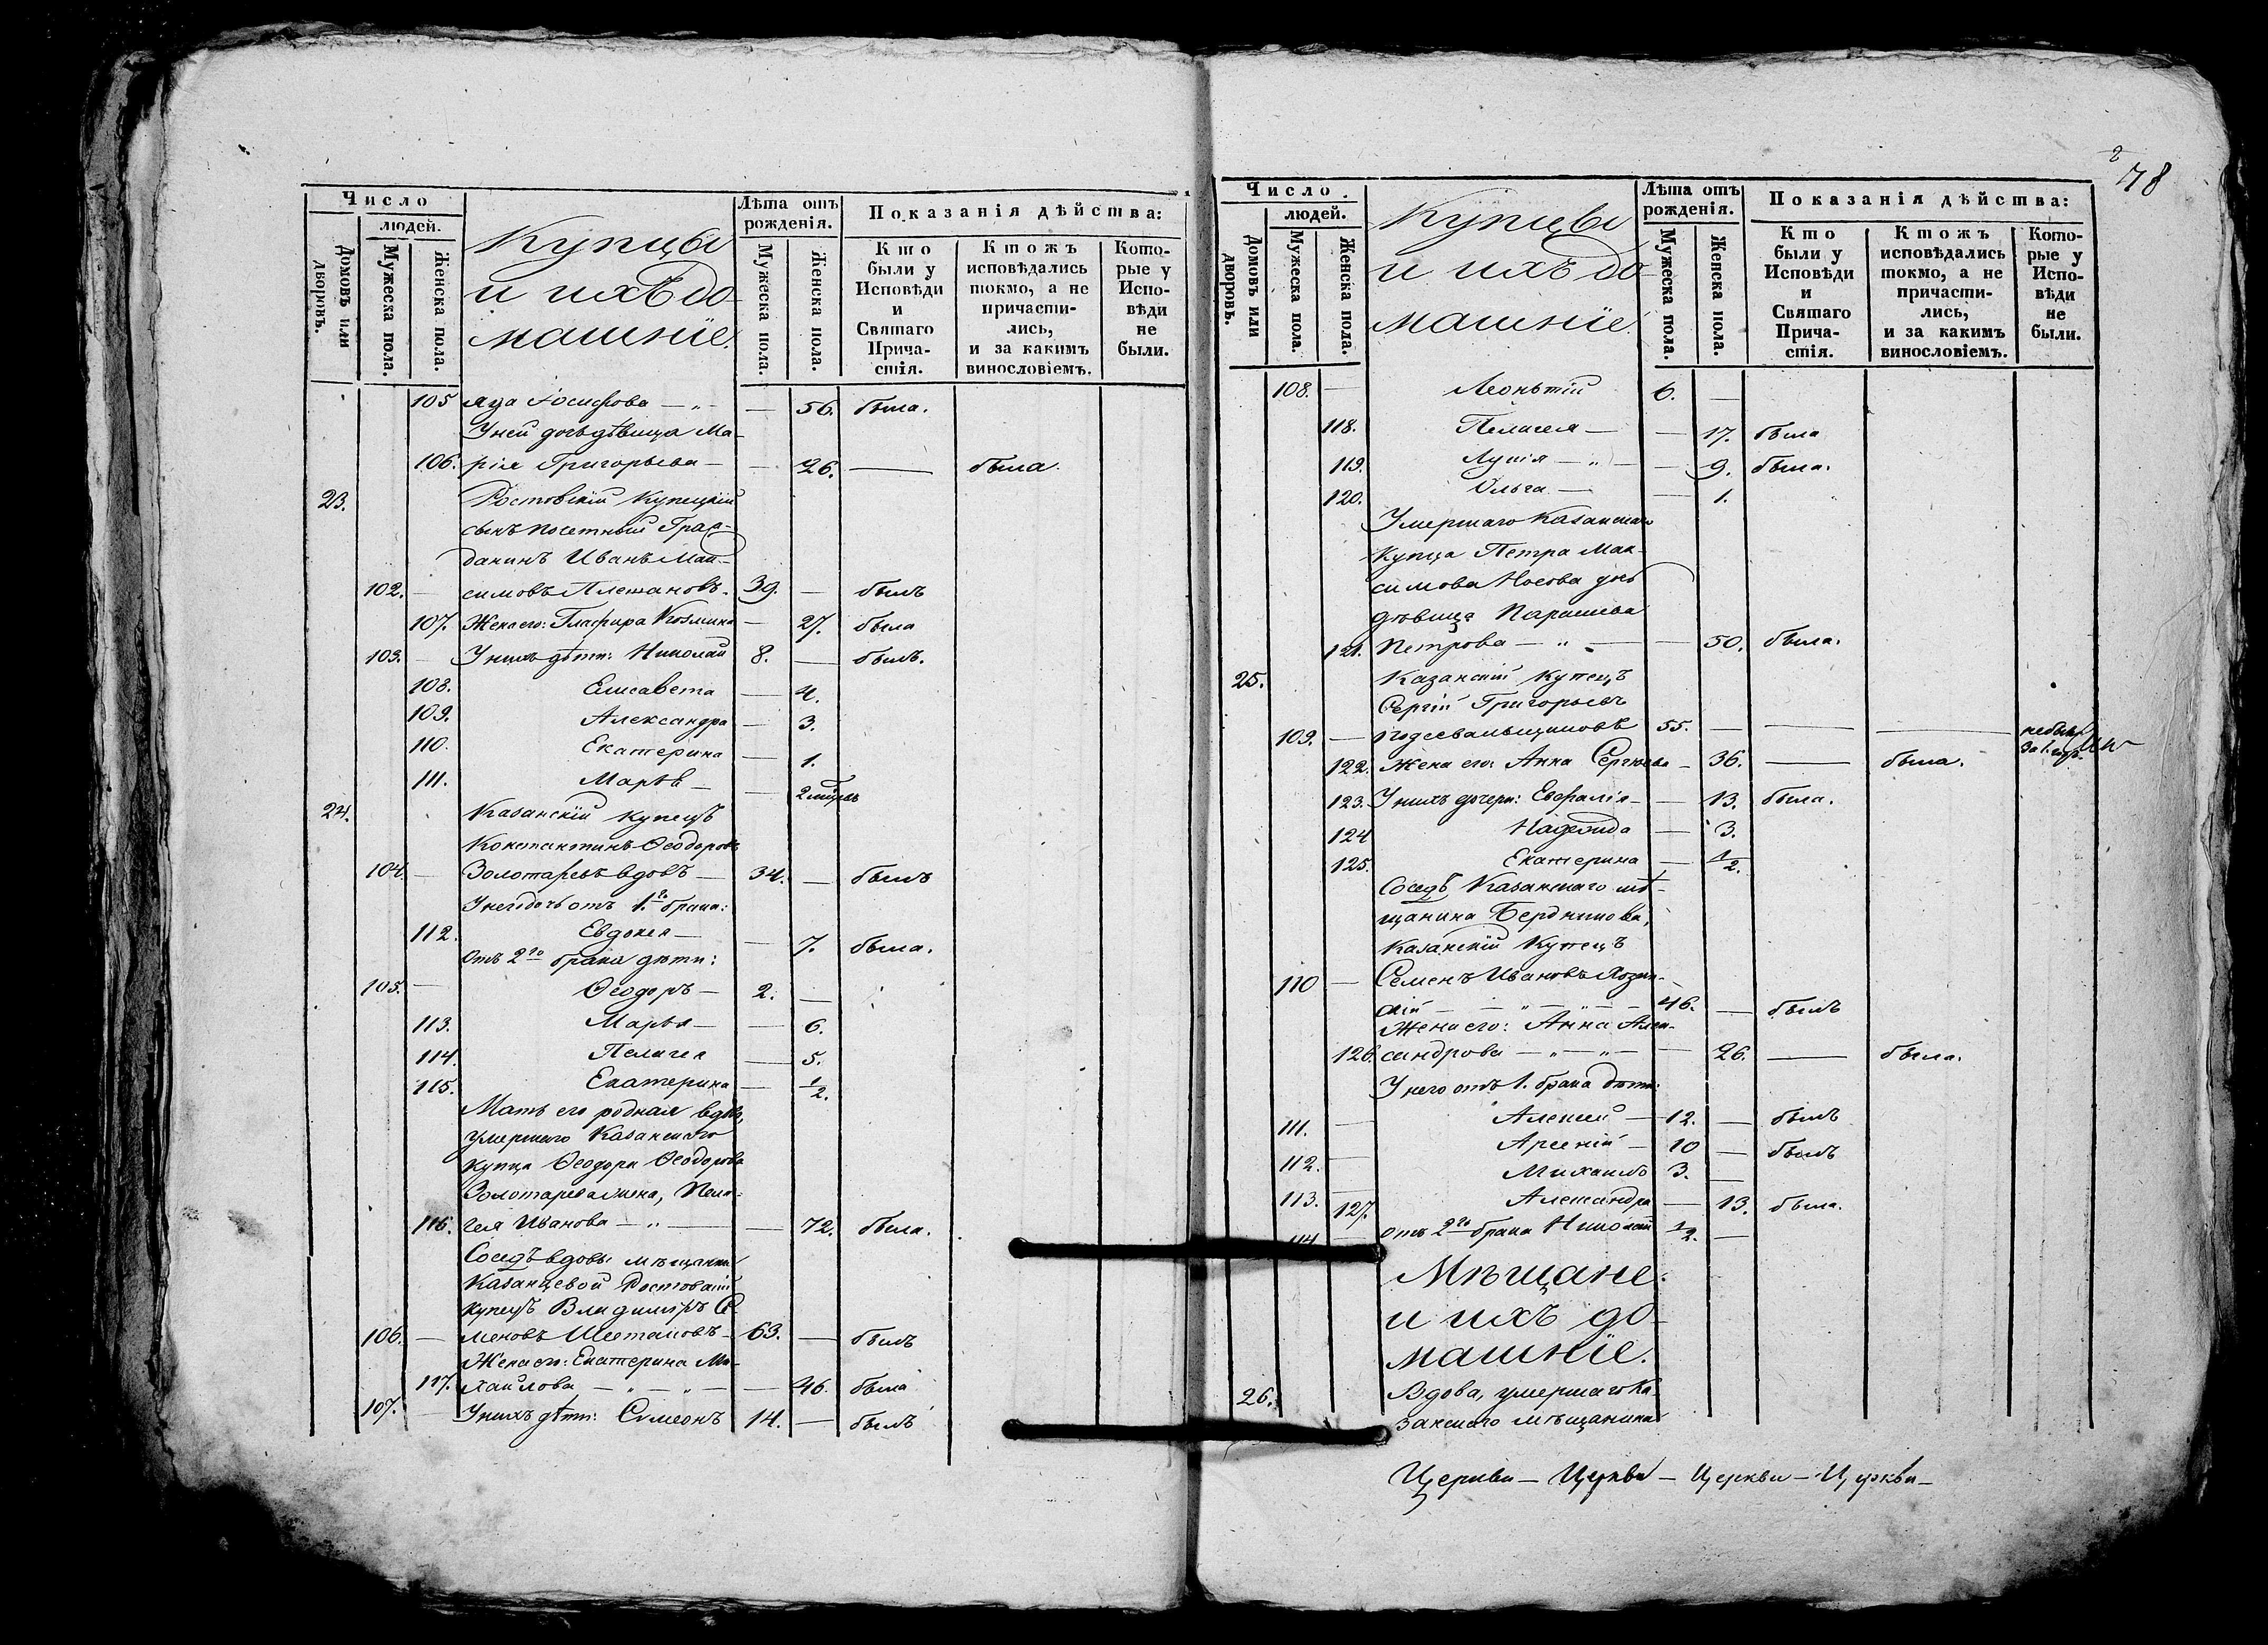 Число
людей.
Домовъ или дворовъ.
Мужеска пола.
Женска пола.
Купцы
и ихъ до-
машніе.
Лѣта отъ рожденія.
Мужеска пола.
Женска пола.
Показанія дѣйства:
Кто были у Исповѣди и Святаго Прича- стія.
Ктожъ исповѣдались токмо, а не причасти- лись, и за какимъ винословіемъ.
Кото- рые у Испо- вѣди не были.
105 Іосифова — „ — 56. была.
У ней дочь дѣвица Ма-
106. рія Григорьева — — 26. — была.
23. Ростовскій Купецкій
сынъ почетный Граж-
данинъ Иванъ Мак-
102. — симовъ Плешановъ. 39. — былъ
107. Жена его: Глафира Козмина — 27. была
103. — У нихъ дѣти: Николай 8. — былъ.
108. Елисавета — 4.
109. Александра — 3.
110. Екатерина — 1.
111. Марья — — 2 мѣсяц
24. Казанскій купецъ
Константинъ Ѳеодоровъ
104. — Золотаревъ вдовъ — 34. — былъ
У него дочь отъ 1.го брака:
112. Евдокея — — 7. была.
Отъ 2го брака дѣти:
105. — Ѳеодоръ — 2. —
113. Марья — — 6.
114. Пелагея — 5.
115. Екатерина — 1/2.
Мать его родная вдова,
умершаго Казанскаго
купца Ѳеодора Ѳеодорова
Золотарева жена, Пела-
116. гея Иванова — „ — — 72. была.
Сосѣдъ вдовы мѣщанки
Казанцевой Ростовскій
купецъ Владимиръ Се-
106. — меновъ Шестаковъ — 63. — былъ
Жена его: Екатерина Ми-
117. хайлова — „ — „ — — 46. была
107. — У нихъ дѣти: Симеонъ 14. — былъ
78
Число
людей.
Домовъ или дворовъ.
Мужеска пола.
Женска пола.
Купцы
и ихъ до-
машніе.
Лѣта отъ рожденія.
Мужеска пола.
Женска пола.
Показанія дѣйства:
Кто были у Исповѣди и Святаго Прича- стія.
Ктожъ исповѣдались токмо, а не причасти- лись, и за какимъ винословіемъ.
Кото- рые у Испо- вѣди не были.
108. — Леонтій 6. —
118. Пелагея — — 17. была
119. Лукія — „ — — 9. была.
120. Ольга — — 1.
Умершаго Казанскаго
Купца Петра Мак-
симова Носова дчь
дѣвица Парашева
121. Петрова — „ — — 50. была.
25. Казанскій купецъ
Сергій Григорьевъ
109. — Подсевальщиковъ 55. — — — не былъ
122. Жена его: Анна Сергѣева — 36. — была.
123. У нихъ дочери: Евфалія — — 13. была.
124 Надежда — 3.
125. Екатерина — 1/2.
Сосѣдъ Казанскаго мѣ-
щанина Бердникова,
Казанскій Купецъ
110 — Семенъ Ивановъ
скій — „ — „ — 46. — былъ
Жена его: Анна Алек-
126. сандрова — „ — „ — — 26. — была.
У него отъ 1. брака дѣти:
111. — Алексей — 12. — былъ
112. — Арсеній — 10 — былъ
113. — Михаилъ 3. —
127. Александра — 13. была.
114 — отъ 2го брака Николай 1/2. —
Мѣщане
и ихъ до-
машніе.
26. Вдова, умершаго Ка-
занскаго мѣщанина
Церкви — Церкви — Церкви — Церкви —